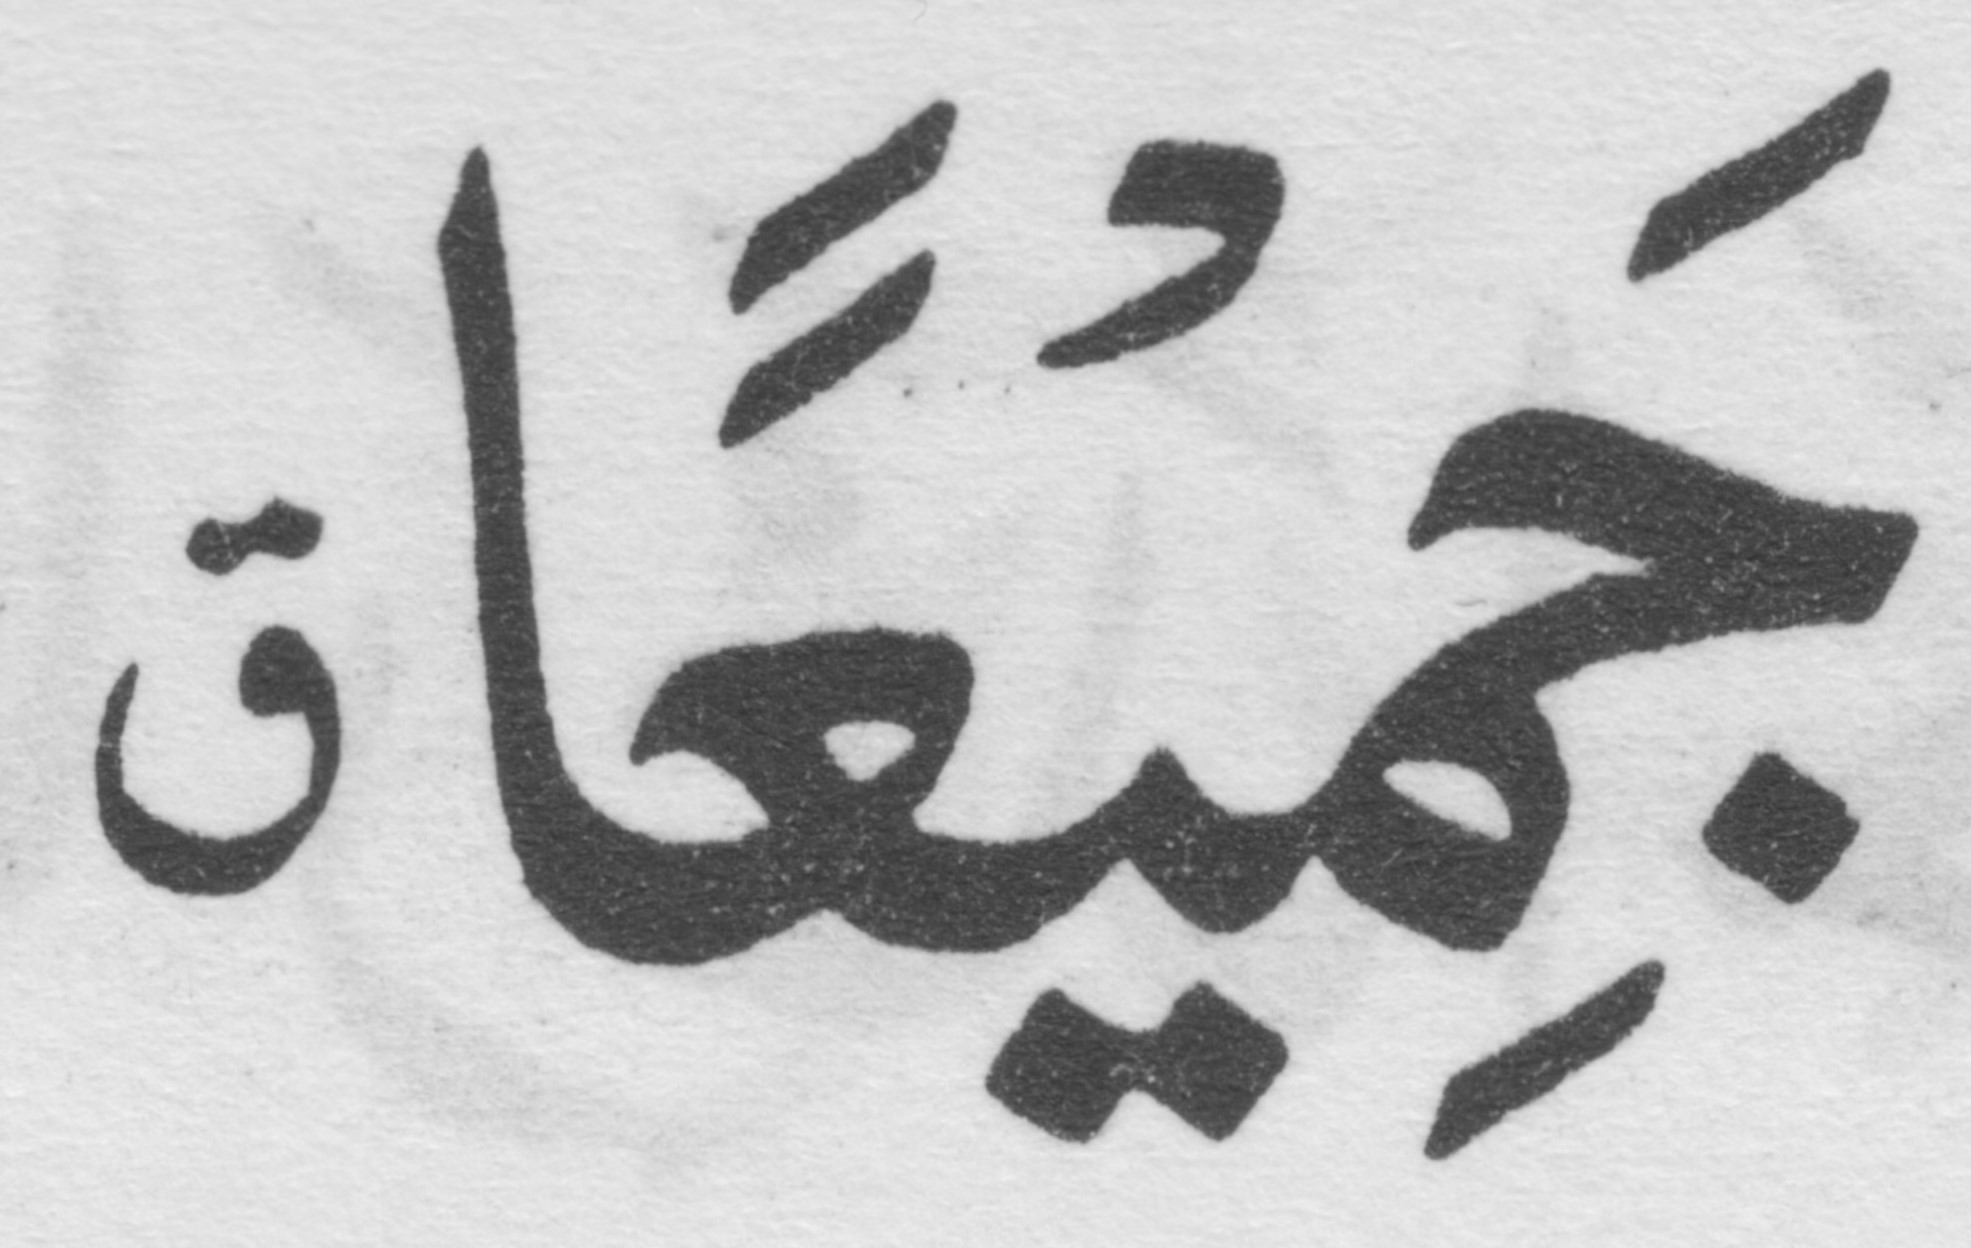 جَمِيْعًا ق